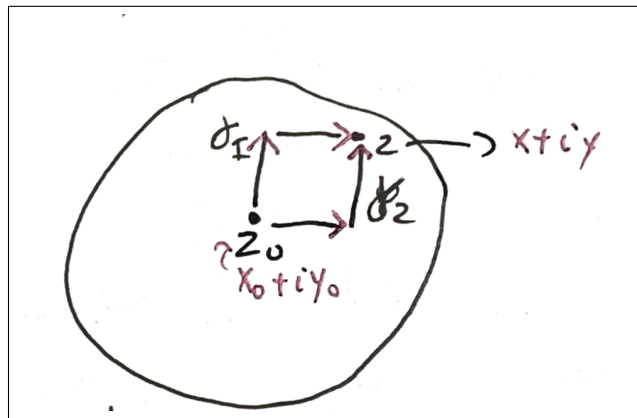 γ_I
z → x+iy
γ_2
z_0
x_0+iy_0